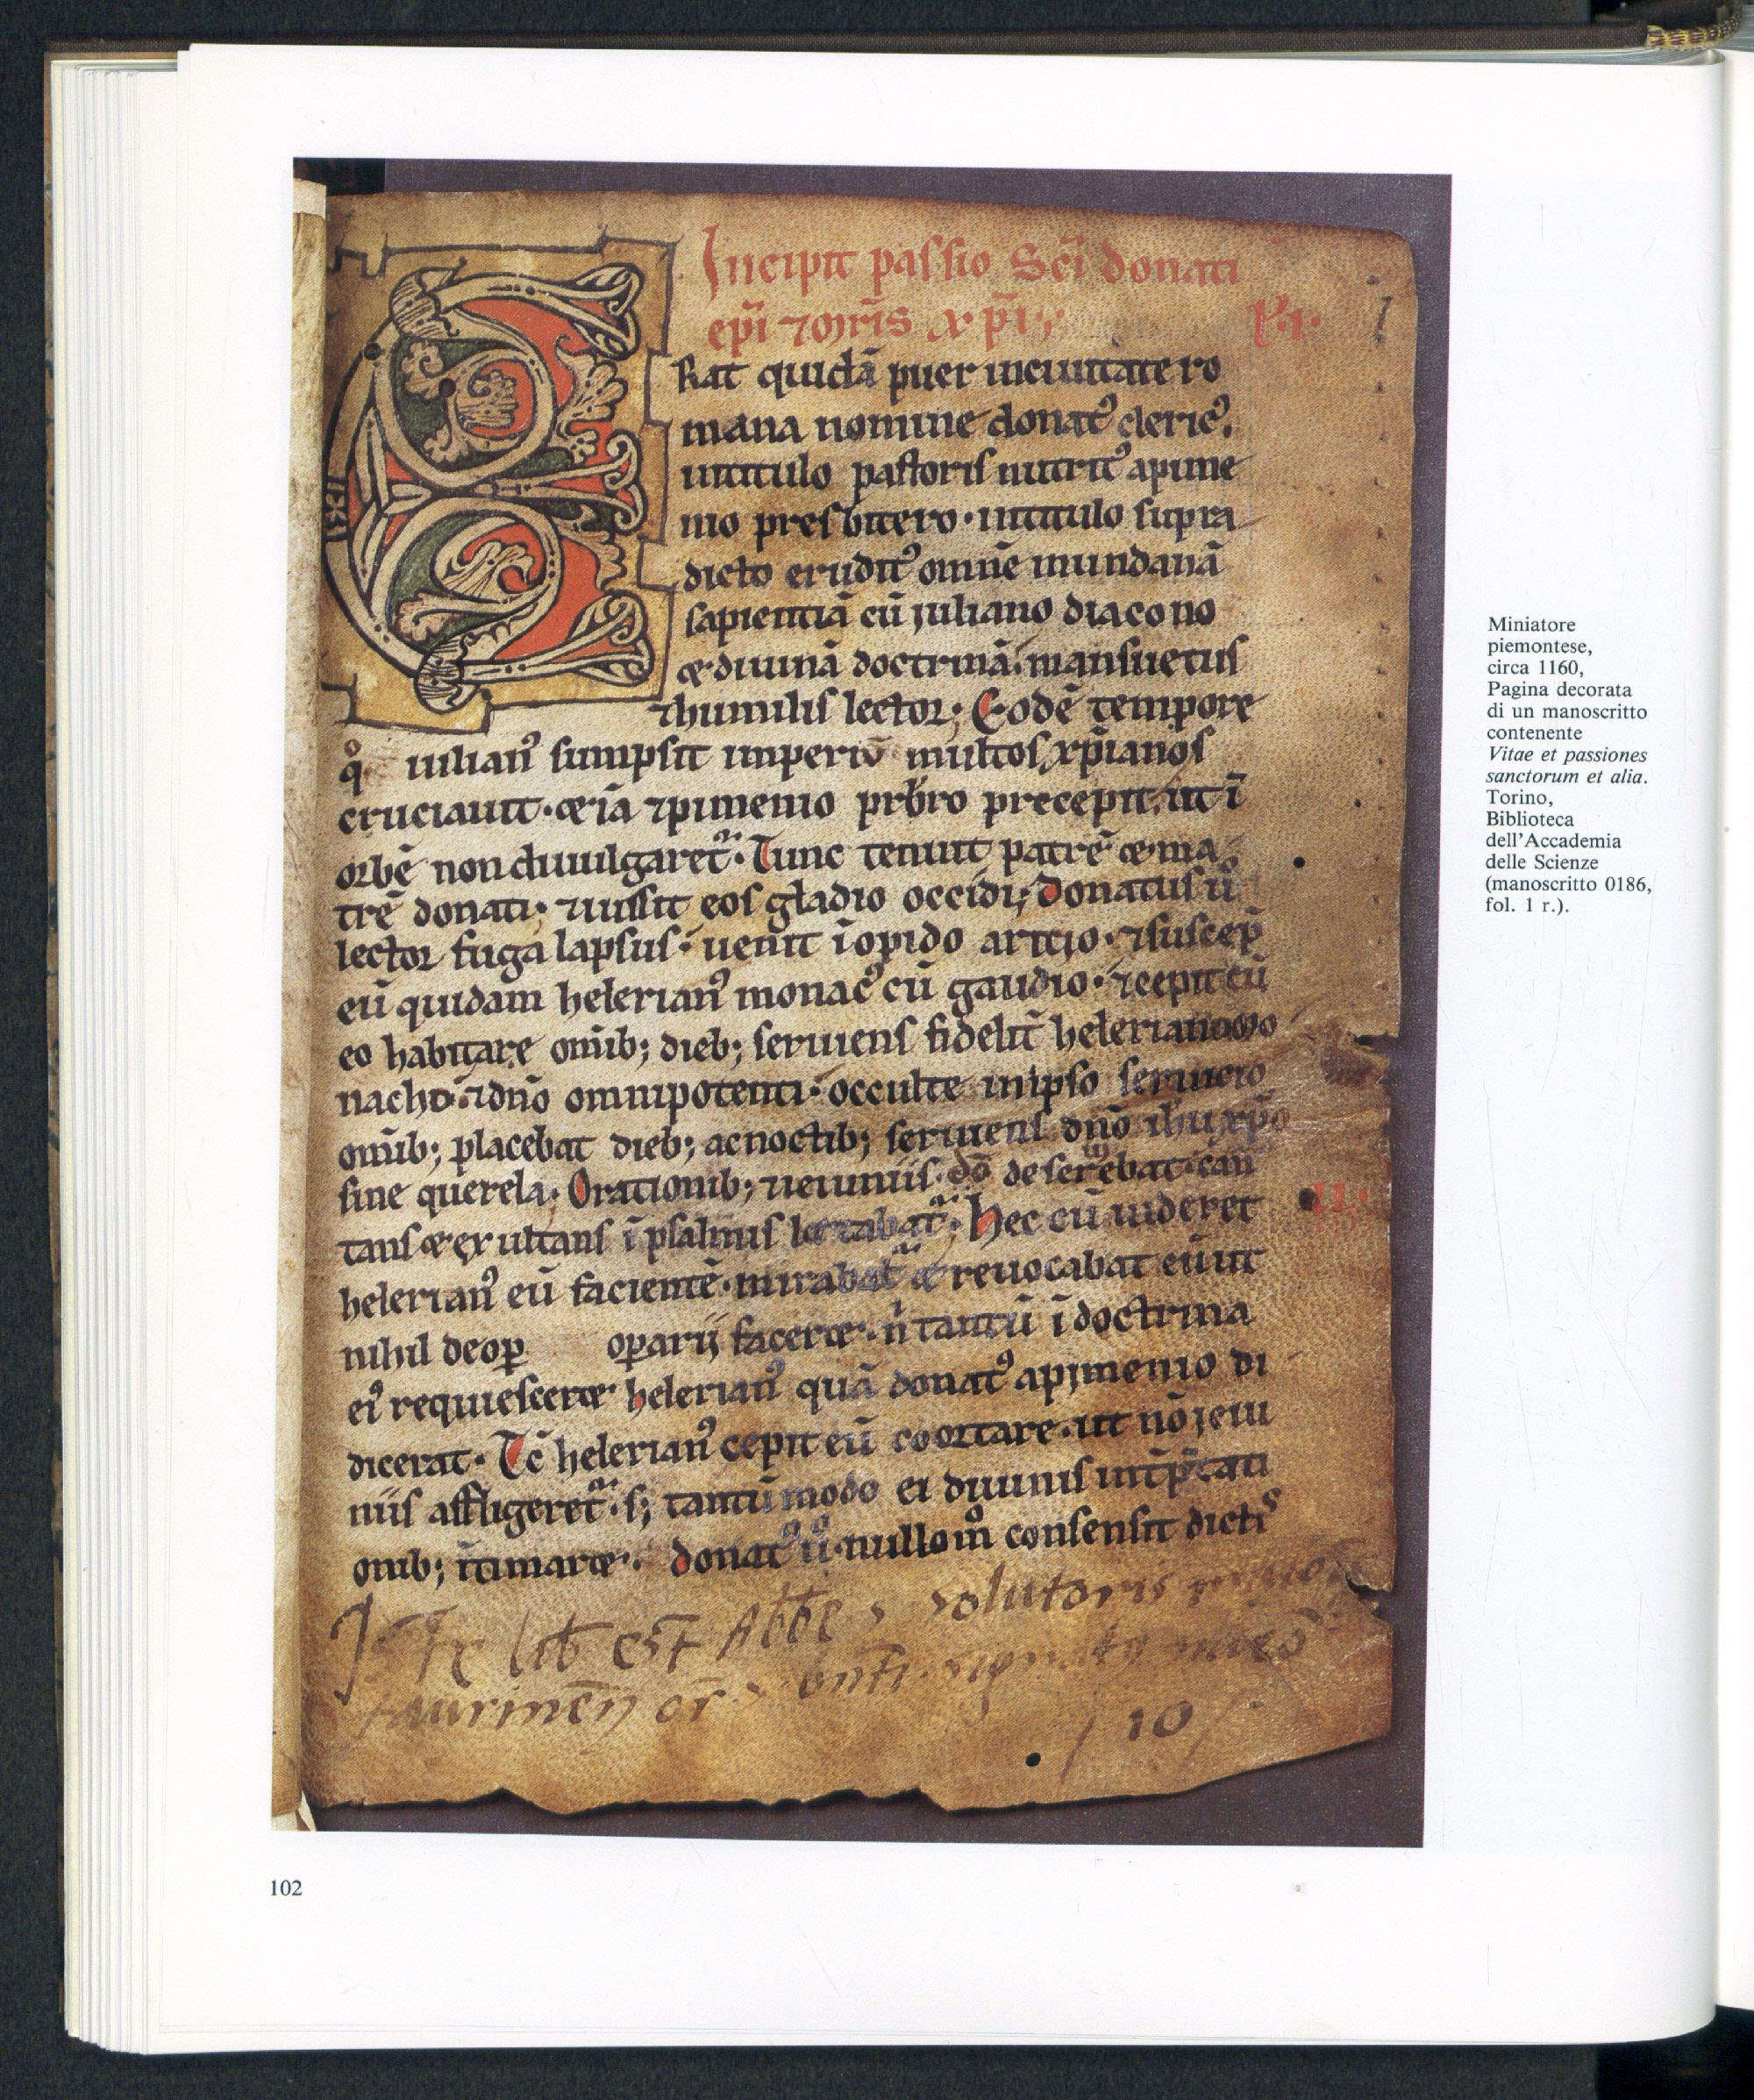 Incipit passio Sc̄i donati
ep̄i ⁊ Mr̄is xp̄i
P.I.
ERat quidā puer inciuitate ro
mana nomine donatꝰ clericꝰ.
intitulo pastoris nutritꝰ apime
nio presbitero · intitulo supra
dicto eruditꝰ omnē mundanā
sapientiā cū iuliano diacono
& diuinā doctrinā. mansuetus
⁊humilis lector; Eodē tempore
qͦ iulianꝰ sumpsit imperiū multos xp̄ianos
cruciauit · & iā ⁊pimenio prb̄ro precepit. ut ī
orbē non diuulgaret᷑ · Tunc tenuit patrē & ma
trē donati · ⁊iussit eos gladio occidi; Donatus ū
lector fuga lapsus · uenit ī opido aritio · ⁊suscep̄
eū quidam helerianꝰ monacꝰ cū gaudio · ⁊cepit cū
eo habitare om̄ib; dieb; seruiens fidelit̄ heleriano mo
nacho · ⁊dn̄o omnipotenti · occulte inipso seruicio
om̄ib; placebat dieb; acnoctib; seruiens dn̄o ihu xp̄o
sine querela · Orationib; ⁊ieiuniis · dō deseruiebat · can
tans & exultans ī psalmis lætabat᷑ · Hec cū uideret
II.
helerianꝰ eū facientē · mirabat᷑ & reuocabat eū ut
nihil deoꝑ oꝑarii facer& · n̄ tantū ī doctrina
eiꝰ requiescer& helerianꝰ quā donatꝰ apimenio di
dicerat · Tc̄ helerianꝰ cepit eū coortare · ut nō ieiu
niis affligeret᷑ · s; tantū modo ei diuinis int̄p̄tati
onib; ītimar& · donatꝰ ū · nullom̊ consensit dictis
Iste lib est Abbe solutoris
taurinen̄ or̄
10
Miniatore
piemontese,
circa 1160,
Pagina decorata
di un manoscritto
contenente
Vitae et passiones
sanctorum et alia.
Torino,
Biblioteca
dell'Accademia
delle Scienze
(manoscritto 0186,
fol. 1 r.).
102